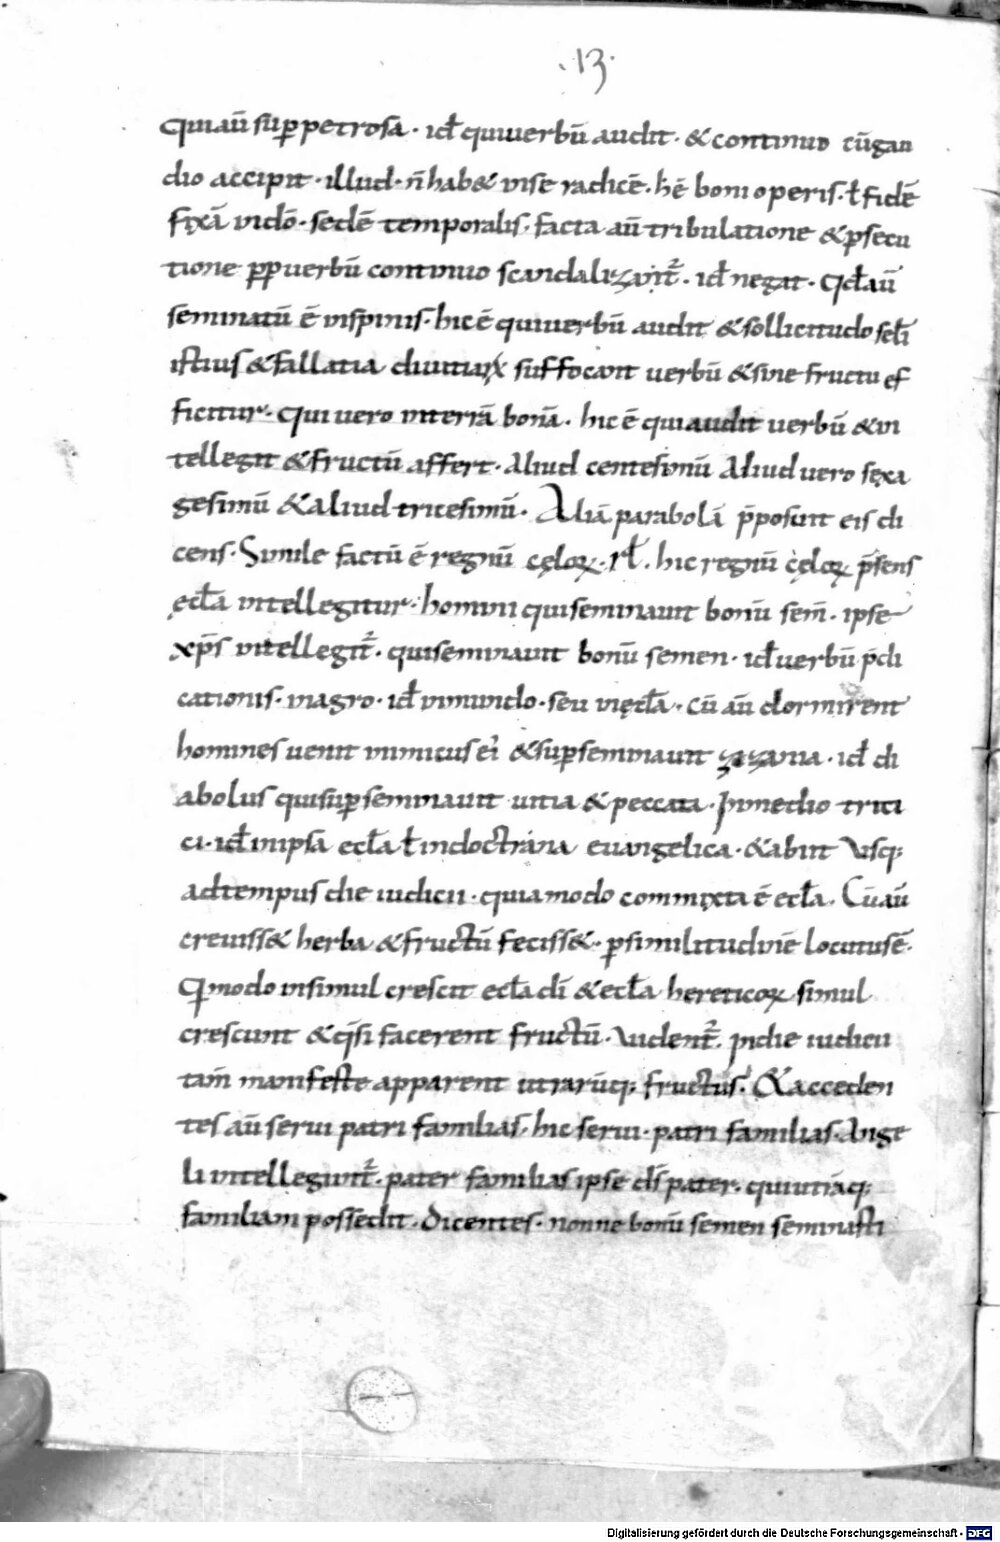 .13.
Qui aū sup̄ petrosa · idẽ qui uerbū audit · & continuo cū gau
dio accipit · illud · ñ hab& in se radicē · hẽ boni operis · ł fidē
fixā in dō · sedē temporalis · facta aū tribulatione & p̱secu
tione pp̱ uerbū continuo scandalizant᷑ · id negat · Qd aū
seminatū ē in spinis · hic ē qui uerbū audit & sollicitudo scłi
istius & fallatia diuitiaꝝ suffocant uerbū & sine fructu ef
ficitur · Qui uero in terrā bonā · hic ē qui audit uerbū & in
tellegit & fructū affert · Aliud centesimū Aliud uero sexa
gesimū & aliud tricesimū · Aliā parabolā p̄posuit eis di
cens · Simile factū ē regnū cęloꝝ · rł · hic regnū cęloꝝ p̄sens
ęcła intellegitur · homini qui seminauit bonū sem̄ · ipse
xp̄s intellegit᷑ · qui seminauit bonū semen · id uerbū p̄di
cationis · in agro · id in mundo · seu in ęcła · Cū aū dormirent
homines uenit inimicus ei & sup̱seminauit zizania · id di
abolus qui sup̱seminauit uitia & peccata · In medio triti
ci · id in ipsa ecła ł in doctrina euangelica · & abiit Usq;
ad tempus die iudicii · quia modo commixta ē ecła · Cū aū
creuiss& herba & fructū feciss& · p̱ similitudinē locutus ē ·
Qmodo insimul crescit ecła di & ecła hereticoꝝ simul
crescunt & q̄si facerent fructū · Uident᷑ · in die iudicii
tam̄ manifeste apparent utrarūq; fructus · & acceden
tes aū serui patri familias · hic serui · patri familias · Ange
li intellegunt᷑ · pater familias ipse ds̄ pater · qui utiāq;
familiam possedit · Dicentes · nonne bonū semen seminasti
Digitalisierung gefördert durch die Deutsche Forschungsgemeinschaft - DFG